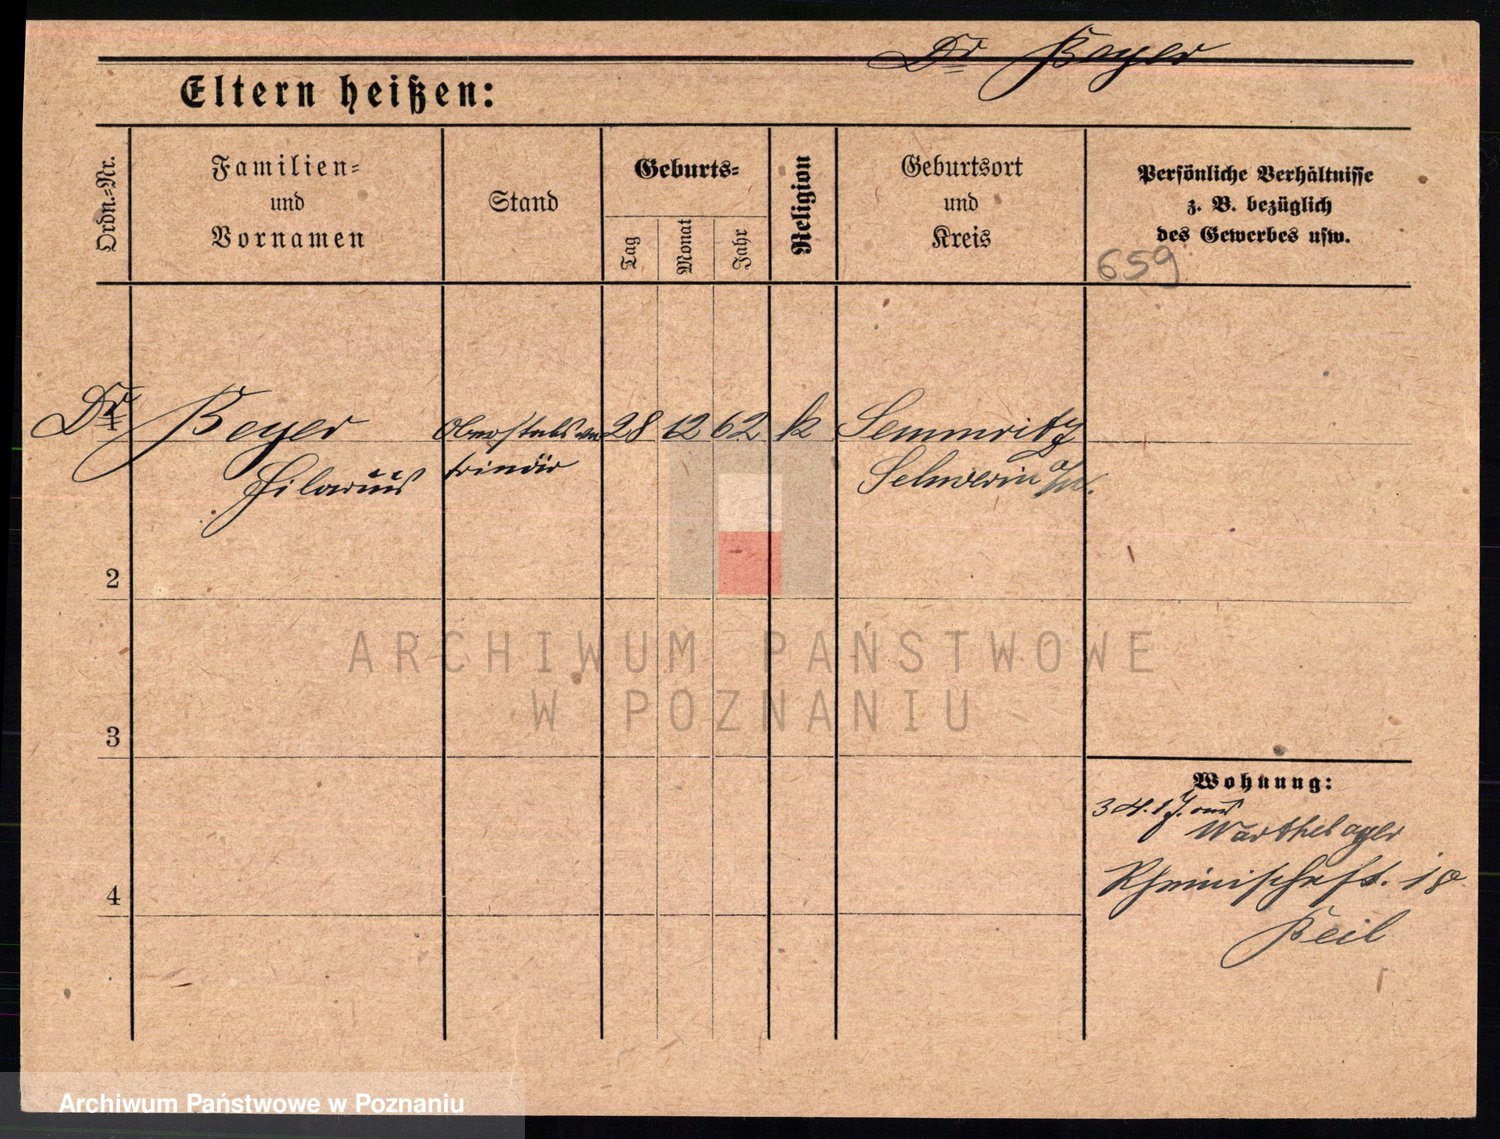 Dr Beyer
Eltern heißen:
Ordn.-Nr.
Familien-
und
Vornamen
Stand
Geburts-
Tag
Monat
Jahr
Religion
Geburtsort
und
Kreis
Persönliche Verhältnisse
z. B. bezüglich
des Gewerbes usw.
659
Dr 1 Beyer Oberstabsve 28 12 62 k Semmritz
Hilarius trinär Schwerin a/W.
2
ARCHIWUM PAŃSTWOWE
W POZNANIU
3
Wohnung:
3 4. 17. aus
Warthelager
Rheinischestr. 18
Beil
4
Archiwum Państwowe w Poznaniu